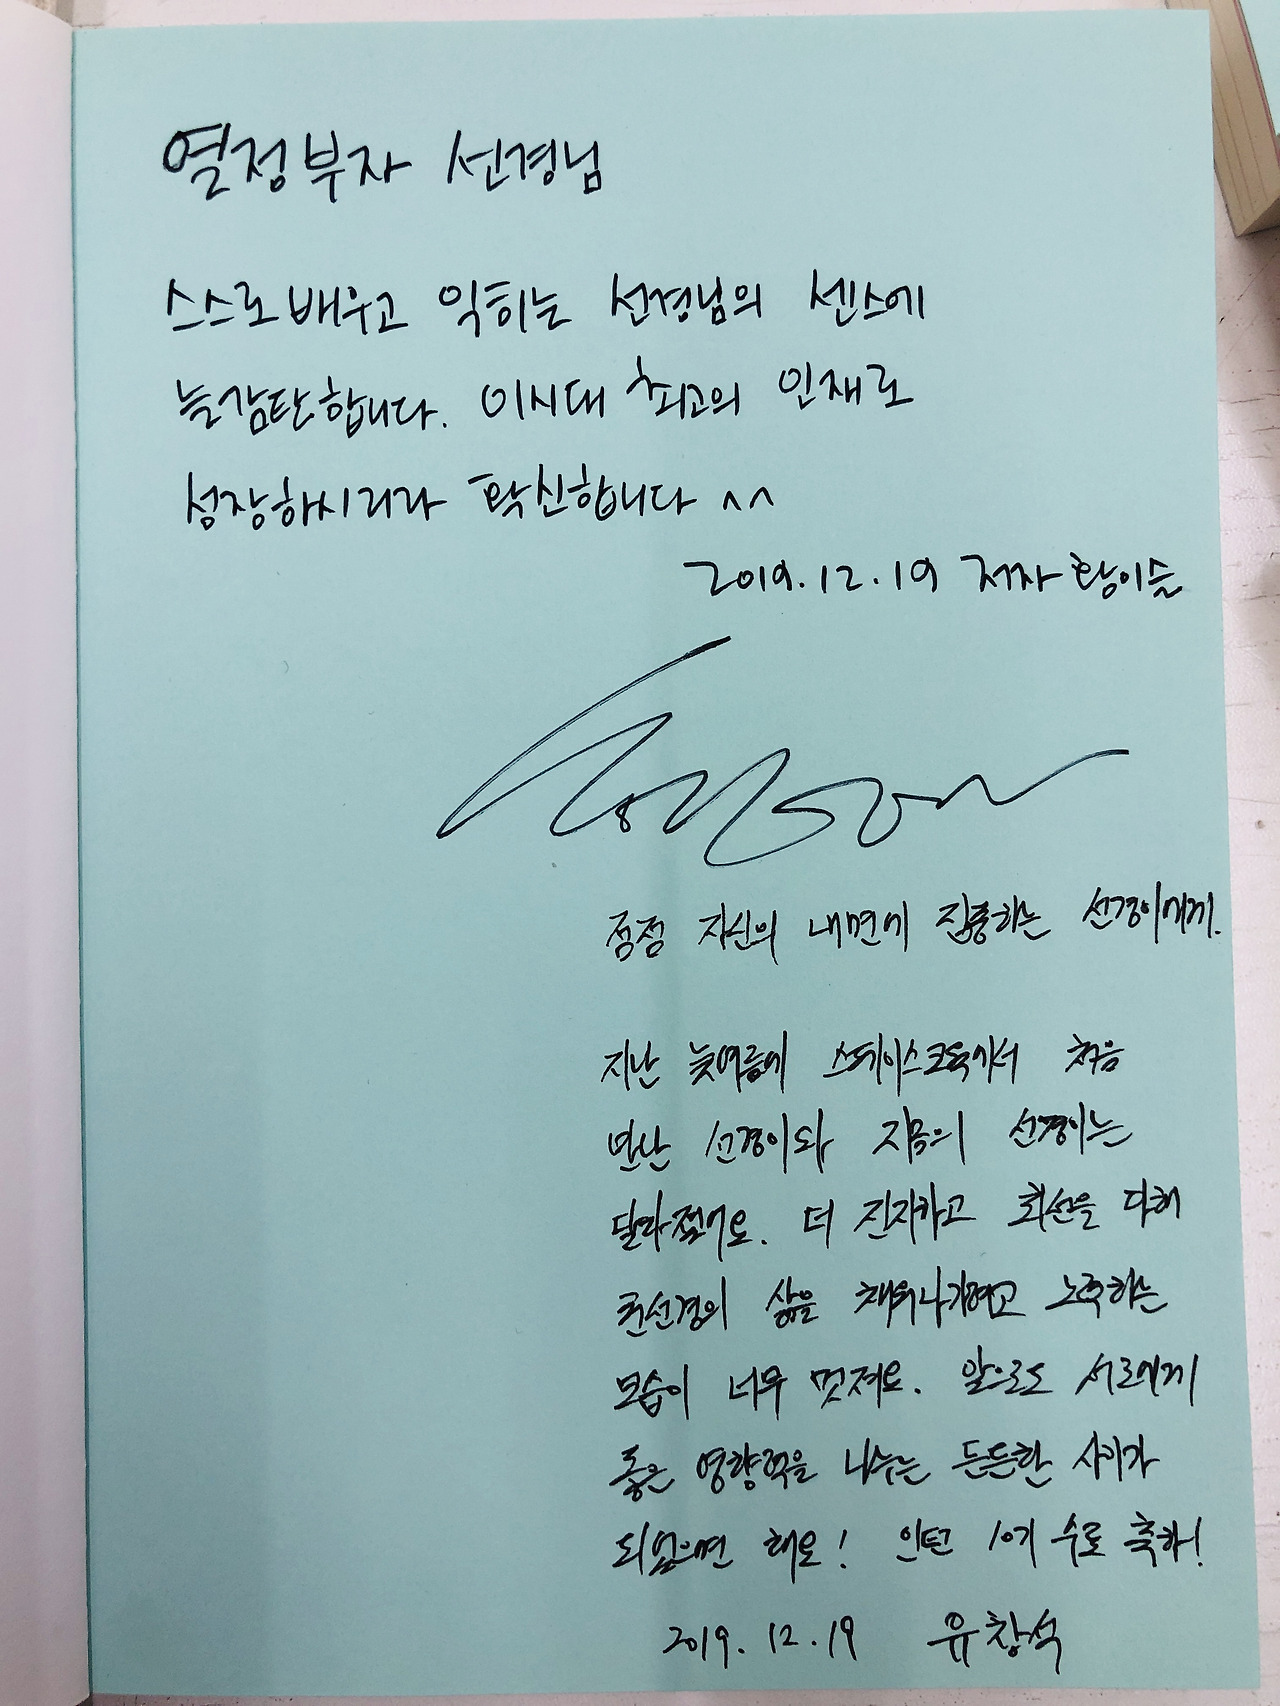 열정부자 선경님
스스로 배우고 익히는 선경님의 센스에
늘 감탄합니다. 이시대 최고의 인재로
성장하시리라 확신합니다 ^^
2019.12.19 저자 황이슬
점점 자신의 내면에 집중하는 선경이에게.
지난 늦여름에 스페이스코웍에서 처음
만난 선경이와 지금의 선경이는
달라졌어요. 더 진지하고 최선을 다해
권선경의 삶을 채워나가려고 노력하는
모습이 너무 멋져요. 앞으로도 서로에게
좋은 영향력을 나누는 든든한 사이가
되었으면 해요! 인턴 10기 수료 축하!
2019.12.19 유창석